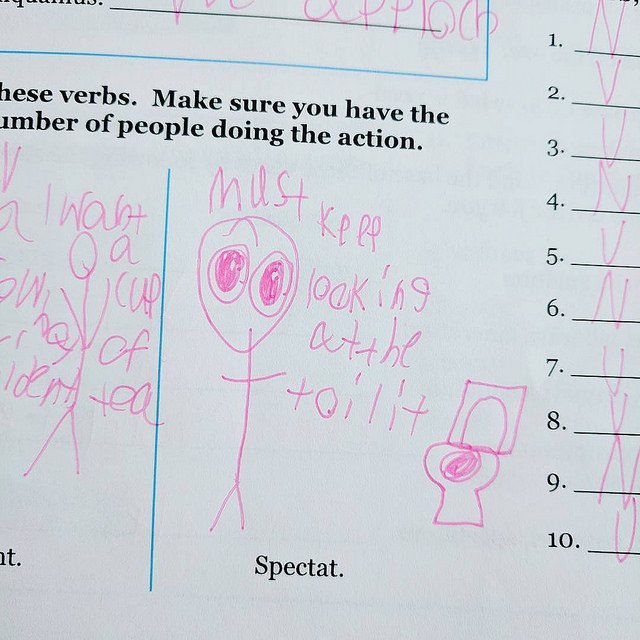 approch
hese verbs. Make sure you have the
umber of people doing the action.
I want
a
cup
of
tea
Must
keep
looking
at the
toilit
nt.
Spectat.
1. N
2. V
3. V
4. N
5. V
6. N
7. V
8. V
9. N
10. V